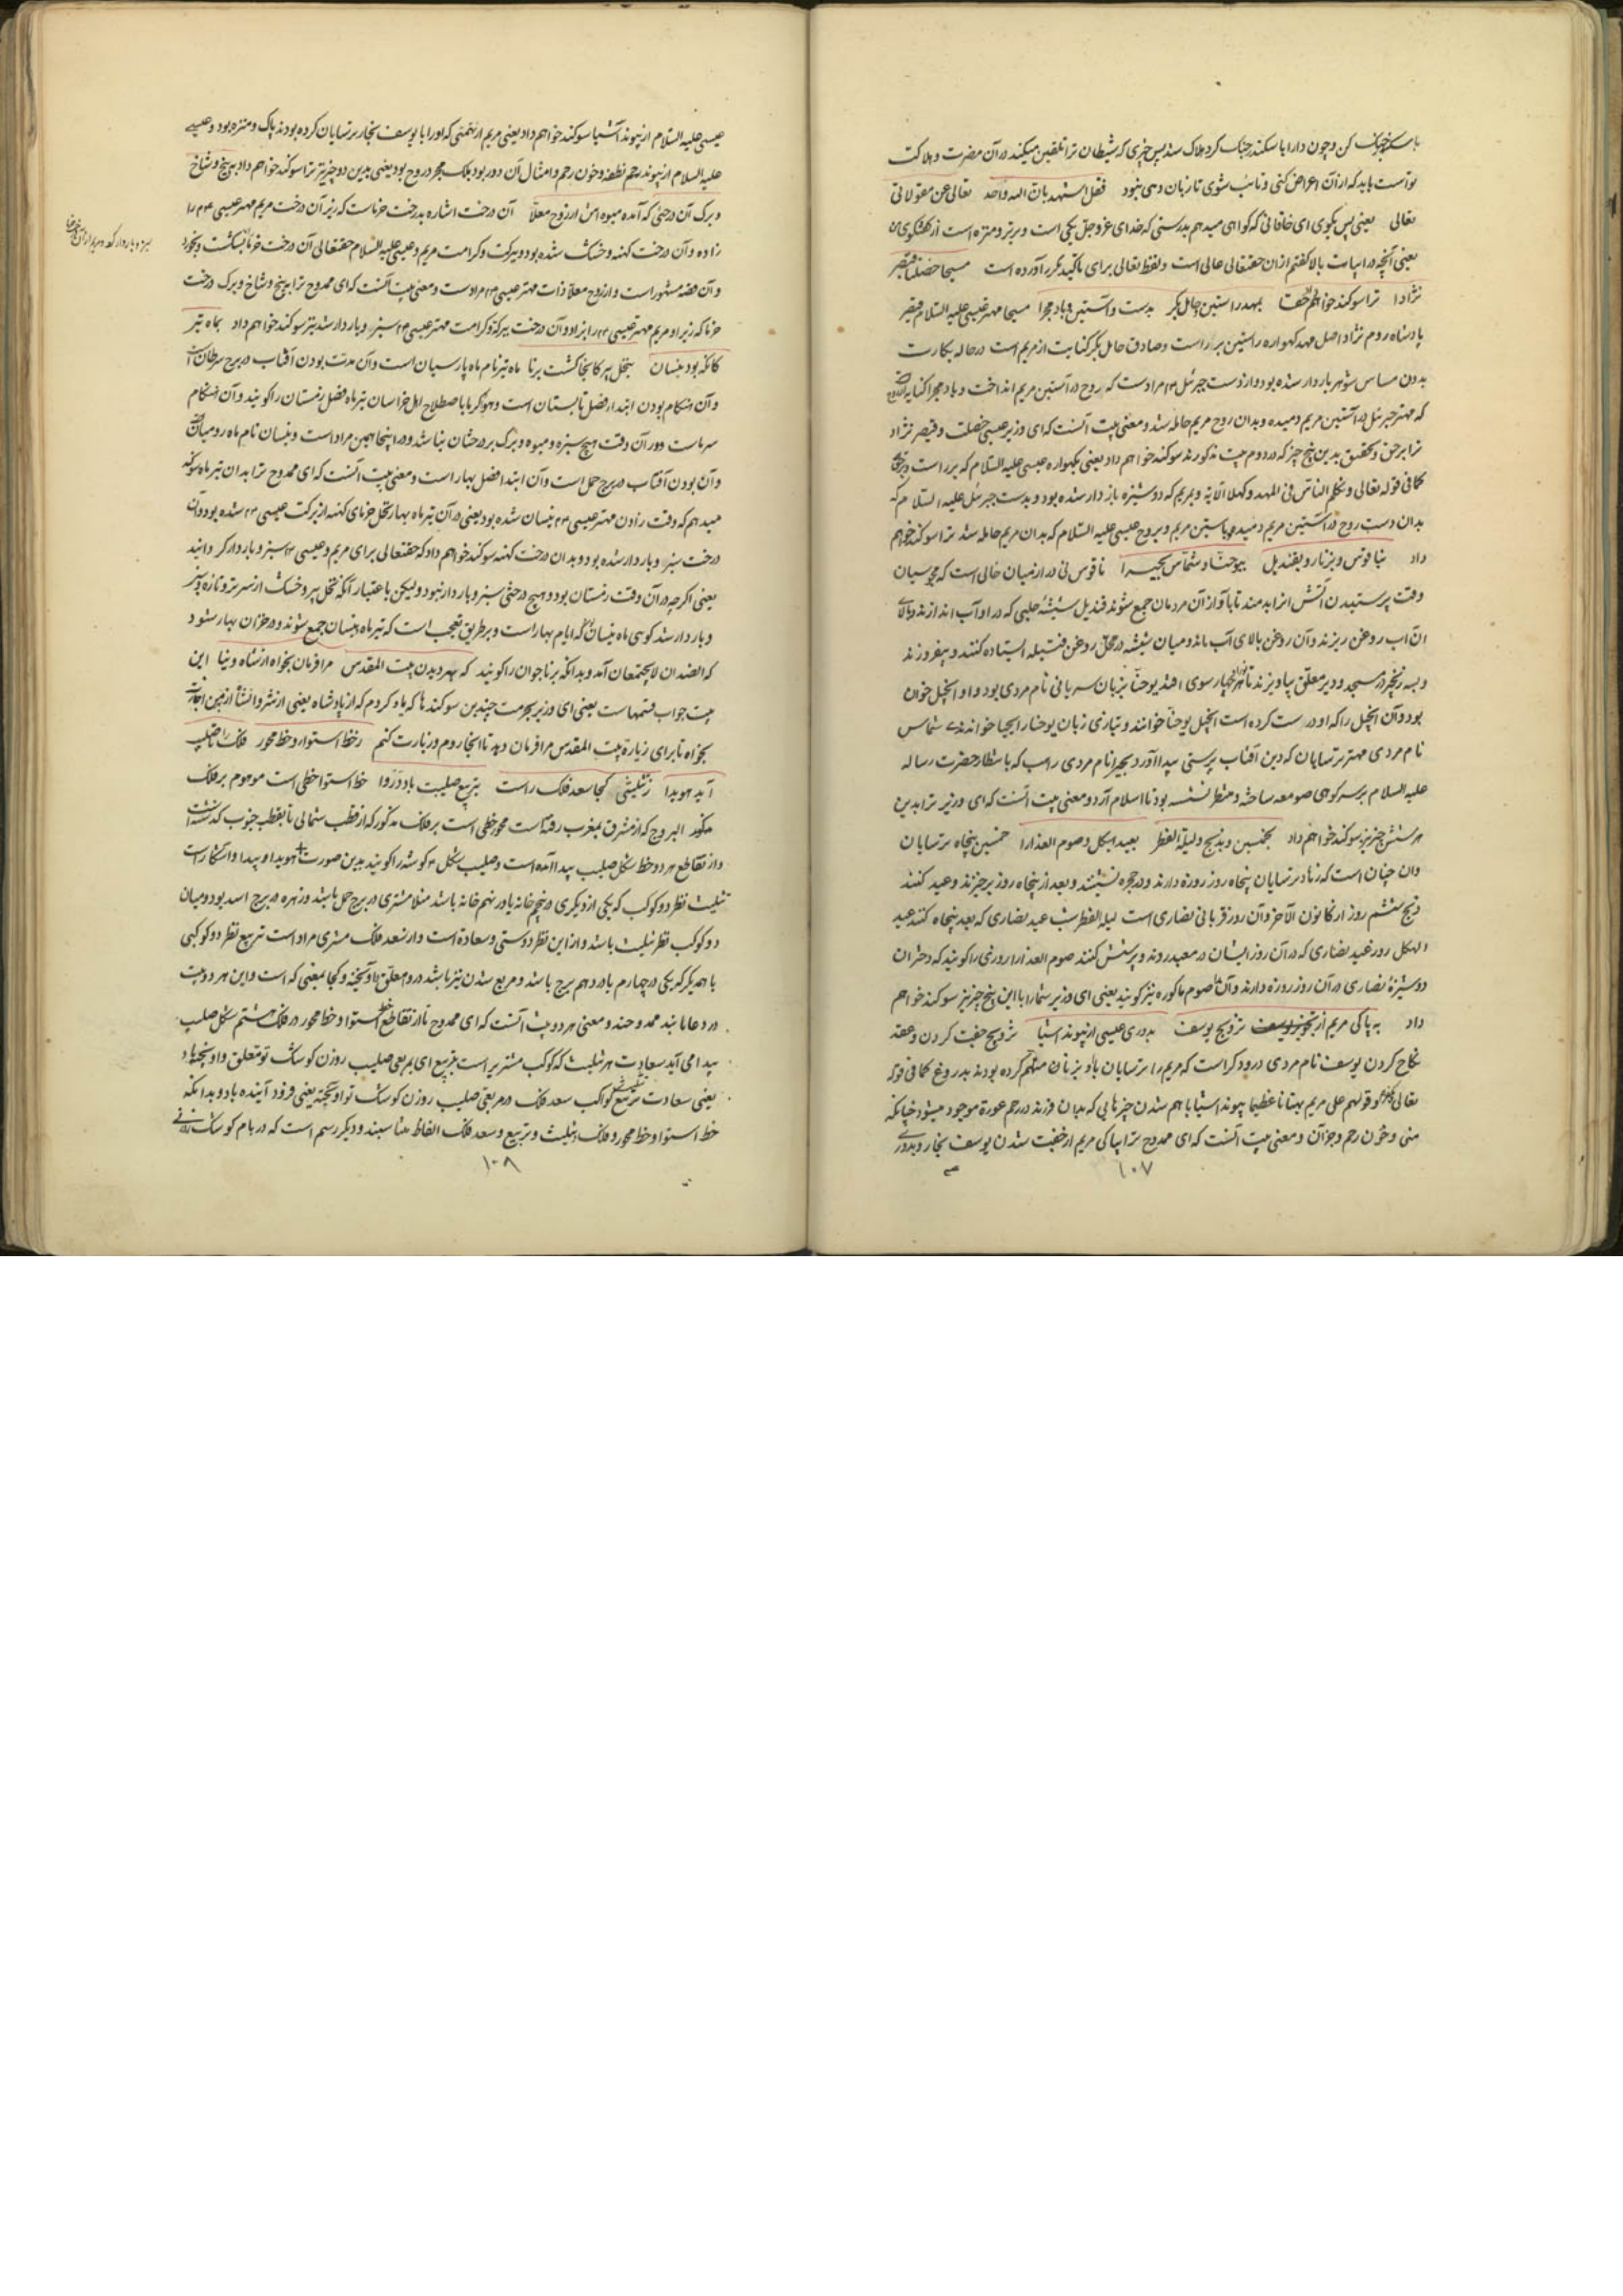 با سکندر جنگ کن و چون دارا با سکندر جنگ کرد هلاک شد پس چیزی که شیطان ترا تلقین میکند در آن مضرت و هلاکت
تو است باید که از آن اعراض کنی و تائب شوی تا زیان دهی نبود فقل اشهد بان الله واحد تعالی عن مقولاتی
تعالی یعنی پس بگوی ای خاقانی که گواهی میدهم بدرستی که خدای عز و جل یکی است و برتر و منزه است از گفتگوی من
یعنی آنچه در ابیات بالا گفتم از ان حقتعالی عالی است و لفظ تعالی برای تاکید مکرر آورده است مسیحا خصلتا قیصر
نژادا ترا سوگند خواهم داد حقا بمهد راستین و حامل بکر بدست و آستین و باد مجرا مسیحا مهتر عیسی علیه السلام قیصر
پادشاه روم نژاد اصل مهد گهواره راستین برراست و صادق حامل بکر کنایت از مریم است در حاله بکارت
بدون مساس شوهر باردار شده بود و از دست جبرئیل مراد ست که روح در آستین مریم انداخت و باد مجرا کنایه
که مهتر جبرئیل در آستین مریم دمیده و بدان روح مریم حامله شد و معنی بیت آنست که ای وزیر عیسی خصلت و قیصر نژاد
ترا بر حق و تحقیق بدین پنج چیز که در دوم بیت مذکورند سوگند خواهم داد یعنی بگهواره عیسی علیه السلام که برراست
کما فی قوله تعالی و تکلم الناس فی المهد و کهلا الآیة و بمریم که دوشیزه باردار شده بود و بدست جبرئیل علیه السلام که
بدان دست روح در آستین مریم دمید و بآستین مریم و بروح عیسی علیه السلام که بدان مریم حامله شد ترا سوگند خواهم
داد بناقوس و بزنار و بقندیل بیوحنا و شماس بحیرا ناقوس نی دراز میان خالی است که مجوسیان
وقت پرستیدن آتش انرا بدمند تا بآواز آن مردمان جمع شوند قندیل شیشه حلبی که در او آب اندازند و بالای
ان آب روغن ریزند و آن روغن بالای آب ماند و میان شیشه در محل روغن فتیله ایستاده کنند و بیفروزند
و بسه زنجیر در مسجد و دیر معلق بیاویزند تا بهر چهار سوی افتد یوحنا بزبان سریانی نام مردی بود و او انجیل خوان
بود و آن انجیل را که او درست کرده است انجیل یوحنا خوانند و بتازی زبان یوحنا را یحیی خوانندی شماس
نام مردی مهتر ترسایان که دین آفتاب پرستی پیدا آورد بحیرا نام مردی راهب که بانتظار حضرت رساله
علیه السلام بر سر کوهی صومعه ساخته و منتظر نشسته بود تا اسلام آرد و معنی بیت آنست که ای وزیر ترا بدین
هر شش چیز نیز سوگند خواهم داد بخمسین و بدنح و لیلة الفطر بعید الهیکل و صوم العذارا خمسین پنجاه ترسایان
وان چنان است که زهاد ترسایان پنجاه روز روزه دارند و در حجره نشینند و بعد از پنجاه روز برخیزند و عید کنند
دنح ششم روز از کانون الآخر و آن روز قربانی نصاری است لیلة الفطر شب عید نصاری که بعد پنجاه کنند عید
الهیکل روز عید نصاری که در آن روز ایشان در معبد روند و پرستش کنند صوم العذارا روزی را گویند که دختران
دوشیزه نصاری در آن روز روزه دارند و آن را صوم باکوره نیز گویند یعنی ای وزیر شما را با این پنج چیز نیز سوگند خواهم
داد به پاکی مریم از تزویج یوسف بدوری عیسی از پیوند اشیا تزویج جفت کردن و عقد
نکاح کردن یوسف نام مردی درودگر است که مریم را ترسایان باو بزنا متهم کرده بودند بدروغ کما فی قوله
تعالی و قولهم علی مریم بهتانا عظیما پیوند اشیا باهم شدن چیزهایی که بدان فرزند در رحم عورة موجود میشود چنانکه
منی و خون رحم و جز آن و معنی بیت آنست که ای ممدوح ترا بپاکی مریم از جفت شدن یوسف نجار و بدوری
۱۰۷
عیسی علیه السلام از پیوند آشیا سوگند خواهم داد یعنی مریم از تهمتی که او را با یوسف نجار ترسایان کرده بودند پاک و منزه بود و عیسی
علیه السلام از پیوند رحم نطفه و خون رحم و امثال آن دور بود بلک مجرد روح بود یعنی بدین دو چیز نیز ترا سوگند خواهم داد به بیخ و شاخ
و برگ آن درختی که آمد میوه اش از روح معلا آن درخت اشاره بدرخت خرماست که زیر آن درخت مریم مهتر عیسی را
زاده و آن درخت کهنه و خشک شده بود و ببرکت و کرامت مریم و عیسی علیه السلام حقتعالی آن درخت خرما
سبز و باردار کرد
و آن قصه مشهور است و از روح معلا ذات مهتر عیسی مراد ست و معنی بیت آنست که ای ممدوح ترا به بیخ و شاخ و برگ درخت
خرما که زیر او مریم مهتر عیسی را بزاد و آن درخت ببرکة و کرامت مهتر عیسی سبز و باردار شد نیز سوگند خواهم داد بماه تیر
کانگه بود نیسان بنخل پیر کانجا گشت برنا ماه تیر نام ماه پارسیان است و آن مدت بودن آفتاب در برج سرطان است
و آن هنگام بودن ابتداء فصل تابستان است و هو گرما با صطلاح اهل خراسان تیر ماه فصل زمستان را گویند و آن هنگام
سرماست و در آن وقت هیچ سبزه و میوه و برگ بر درختان نباشد و در اینجا همین مراد است و نیسان نام ماه رومیان
و آن بودن آفتاب در برج حمل است و آن ابتداء فصل بهار است و معنی بیت آنست که ای ممدوح ترا بدان تیر ماه سوگند
میدهم که وقت زادن مهتر عیسی نیسان شده بود یعنی در آن تیر ماه بهار نخل خرمای کهنه از برکت عیسی شده بود و آن
درخت سبز و باردار شده بود و بدان درخت کهنه سوگند خواهم داد که حقتعالی برای مریم و عیسی سبز و باردار گردانید
یعنی اگرچه در آن وقت زمستان بود و هیچ درختی سبز و باردار نبود و لیکن باعتبار آنکه نخل پیر و خشک از سر تر و تازه و سبز
و باردار شد گوئی ماه نیسان که ایام بهار است و بر طریق تعجب است که تیر ماه و نیسان جمع شوند و در خزان بهار شود
که الضدان لا یجتمعان آمد و بدانکه برنا جوان را گویند که بهر دیدن بیت المقدس مرا فرمان بخواه از شاه دنیا این
بیت جواب قسمهاست یعنی ای وزیر بحرمت چندین سوگندها که یاد کردم که از پادشاه یعنی از
بخواه تا برای زیارة بیت المقدس مرا فرمان دهد تا آنجا روم و زیارت کنم ز خط استوا و خط محور فلک را صلیب
آید هویدا ز تثلیثی کجا سعد فلک راست بتربیع صلیبت باد دروا خط استوا خطی است موهوم بر فلک
البروج که از مشرق بمغرب رفته است محور خطی است بر فلک مذکور که از قطب شمالی تا بقطب جنوب گذشته
و از تقاطع هر دو خط شکل صلیب پیدا آمده است و صلیب شکل ۴ گوشه را گویند بدین صورت + هویدا و پیدا و آشکاراست
تثلیث نظر دو کوکب که یکی از دیگری در پنجم خانه یا در نهم خانه باشد مثلا مشتری در برج حمل باشد و زهره در برج اسد بود و میان
دو کوکب نظر تثلیث باشد و از این نظر دوستی و سعادة است و از سعد فلک مشتری مراد است تربیع نظر دو کوکبی
با همدیگر که یکی در چهارم یا در دهم برج باشد و مربع شدن نیز باشد دروا معلق و آویخته و کجا بمعنی که است و این هر دو بیت
در دعا و معنی هر دو بیت آنست که ای ممدوح تا از تقاطع خط استوا و خط محور در فلک هشتم شکل صلیب
پیدا می آید سعادت هر تثلیث که کوکب مشتری راست بتربیع ای بمربعی صلیب روزن کوشک تو متعلق و آویخته باد
یعنی سعادت تثلیث کواکب سعد فلک در مربعی صلیب روزن کوشک تو آویخته یعنی فرود آینده باد و بدانکه
خط استوا و خط محور و فلک و تثلیث و تربیع و سعد فلک الفاظ متناسبند و دیگر رسم است که در بام کوشک
۱۰۸